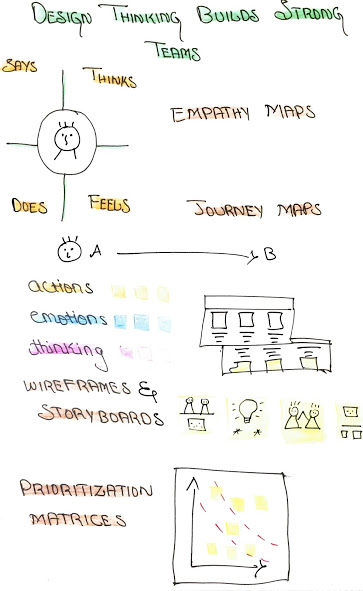 DESIGN THINKING BUILDS STRONG
TEAMS
SAYS
THINKS
EMPATHY MAPS
DOES
FEELS
JOURNEY MAPS
A
B
actions
emotions
thinking
WIREFRAMES &
STORYBOARDS
PRIORITIZATION
MATRICES